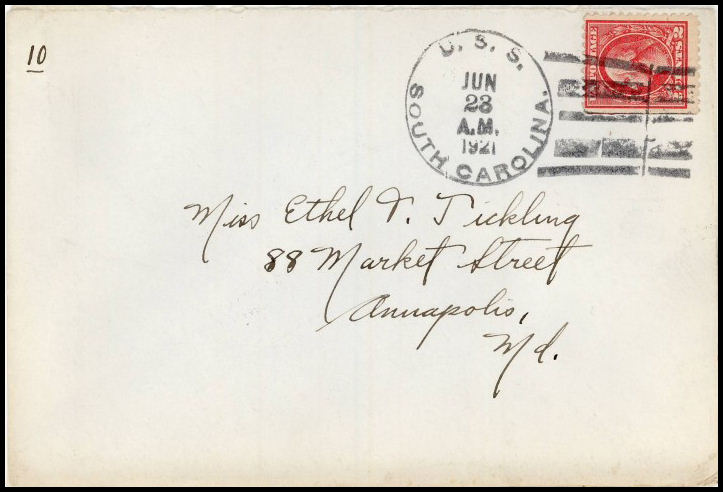 10
U. S. S.
JUN
23
A.M.
1921
SOUTH CAROLINA.
POSTAGE
2 CENTS 2
Miss Ethel V. Tickling
88 Market Street
Annapolis,
Md.